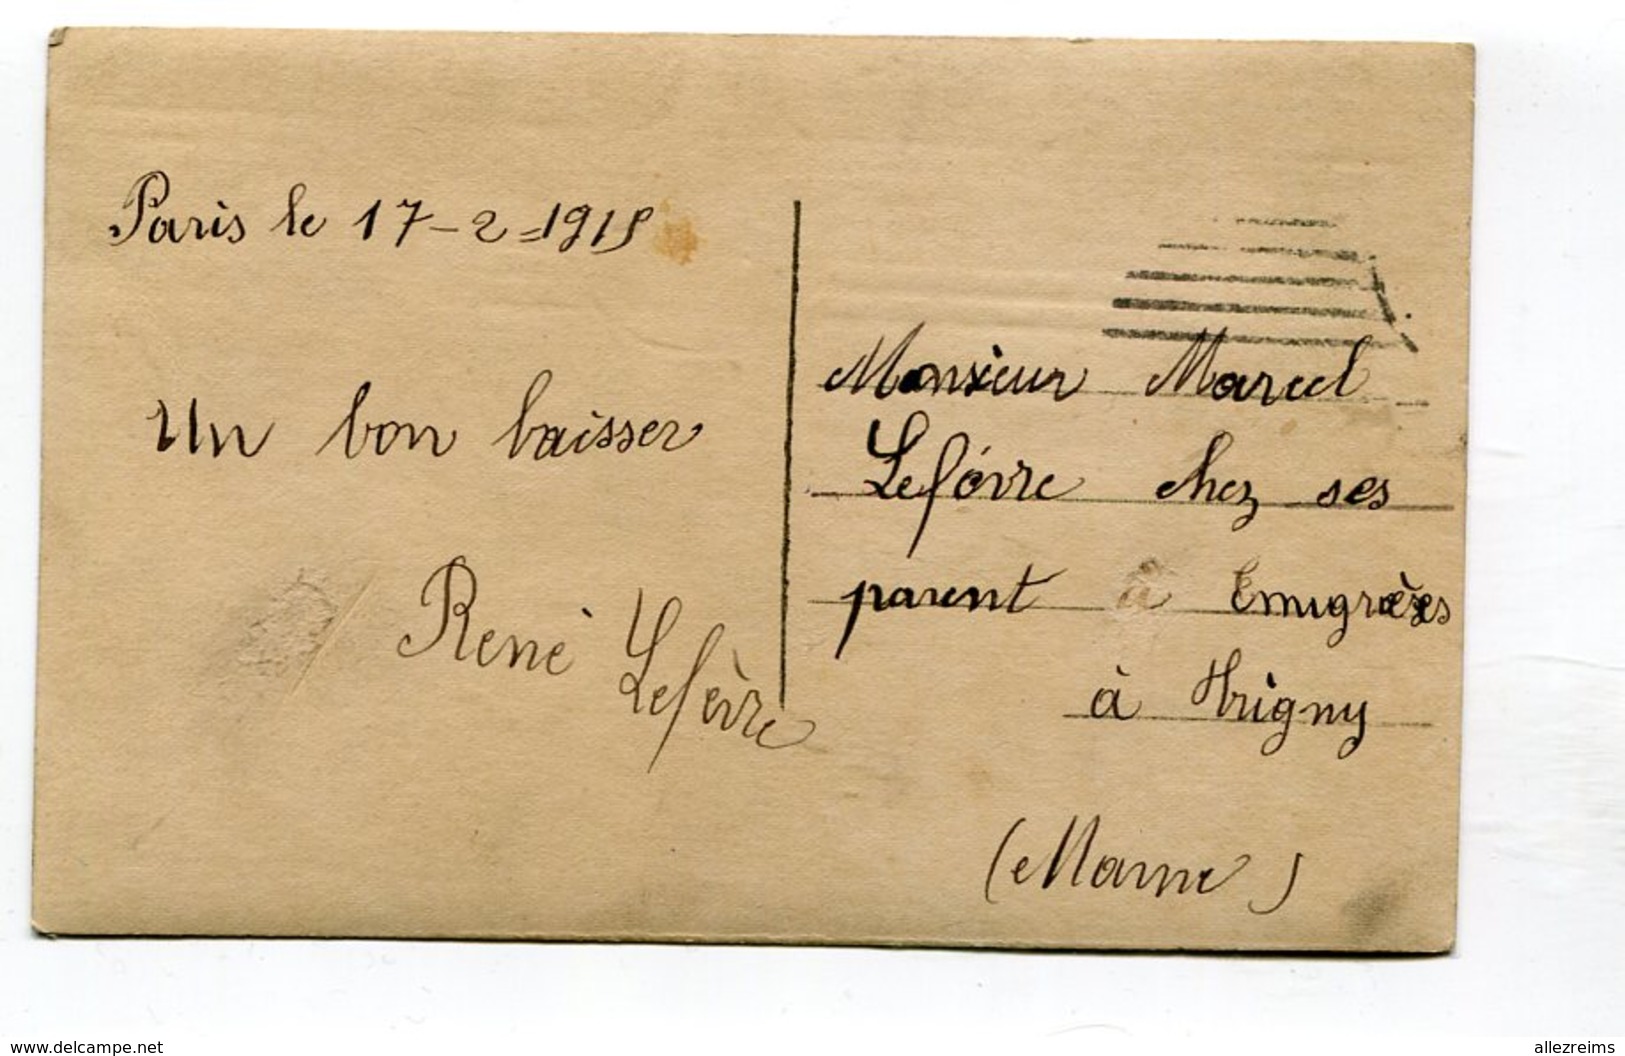 Paris le 17-2=1915
Un bon baisser
René Lefèvre
Monsieur Marcel
Lefèvre chez ses
parent à Emigrèzes
à Trigny
(Marne)
www.delcampe.net
allezreims